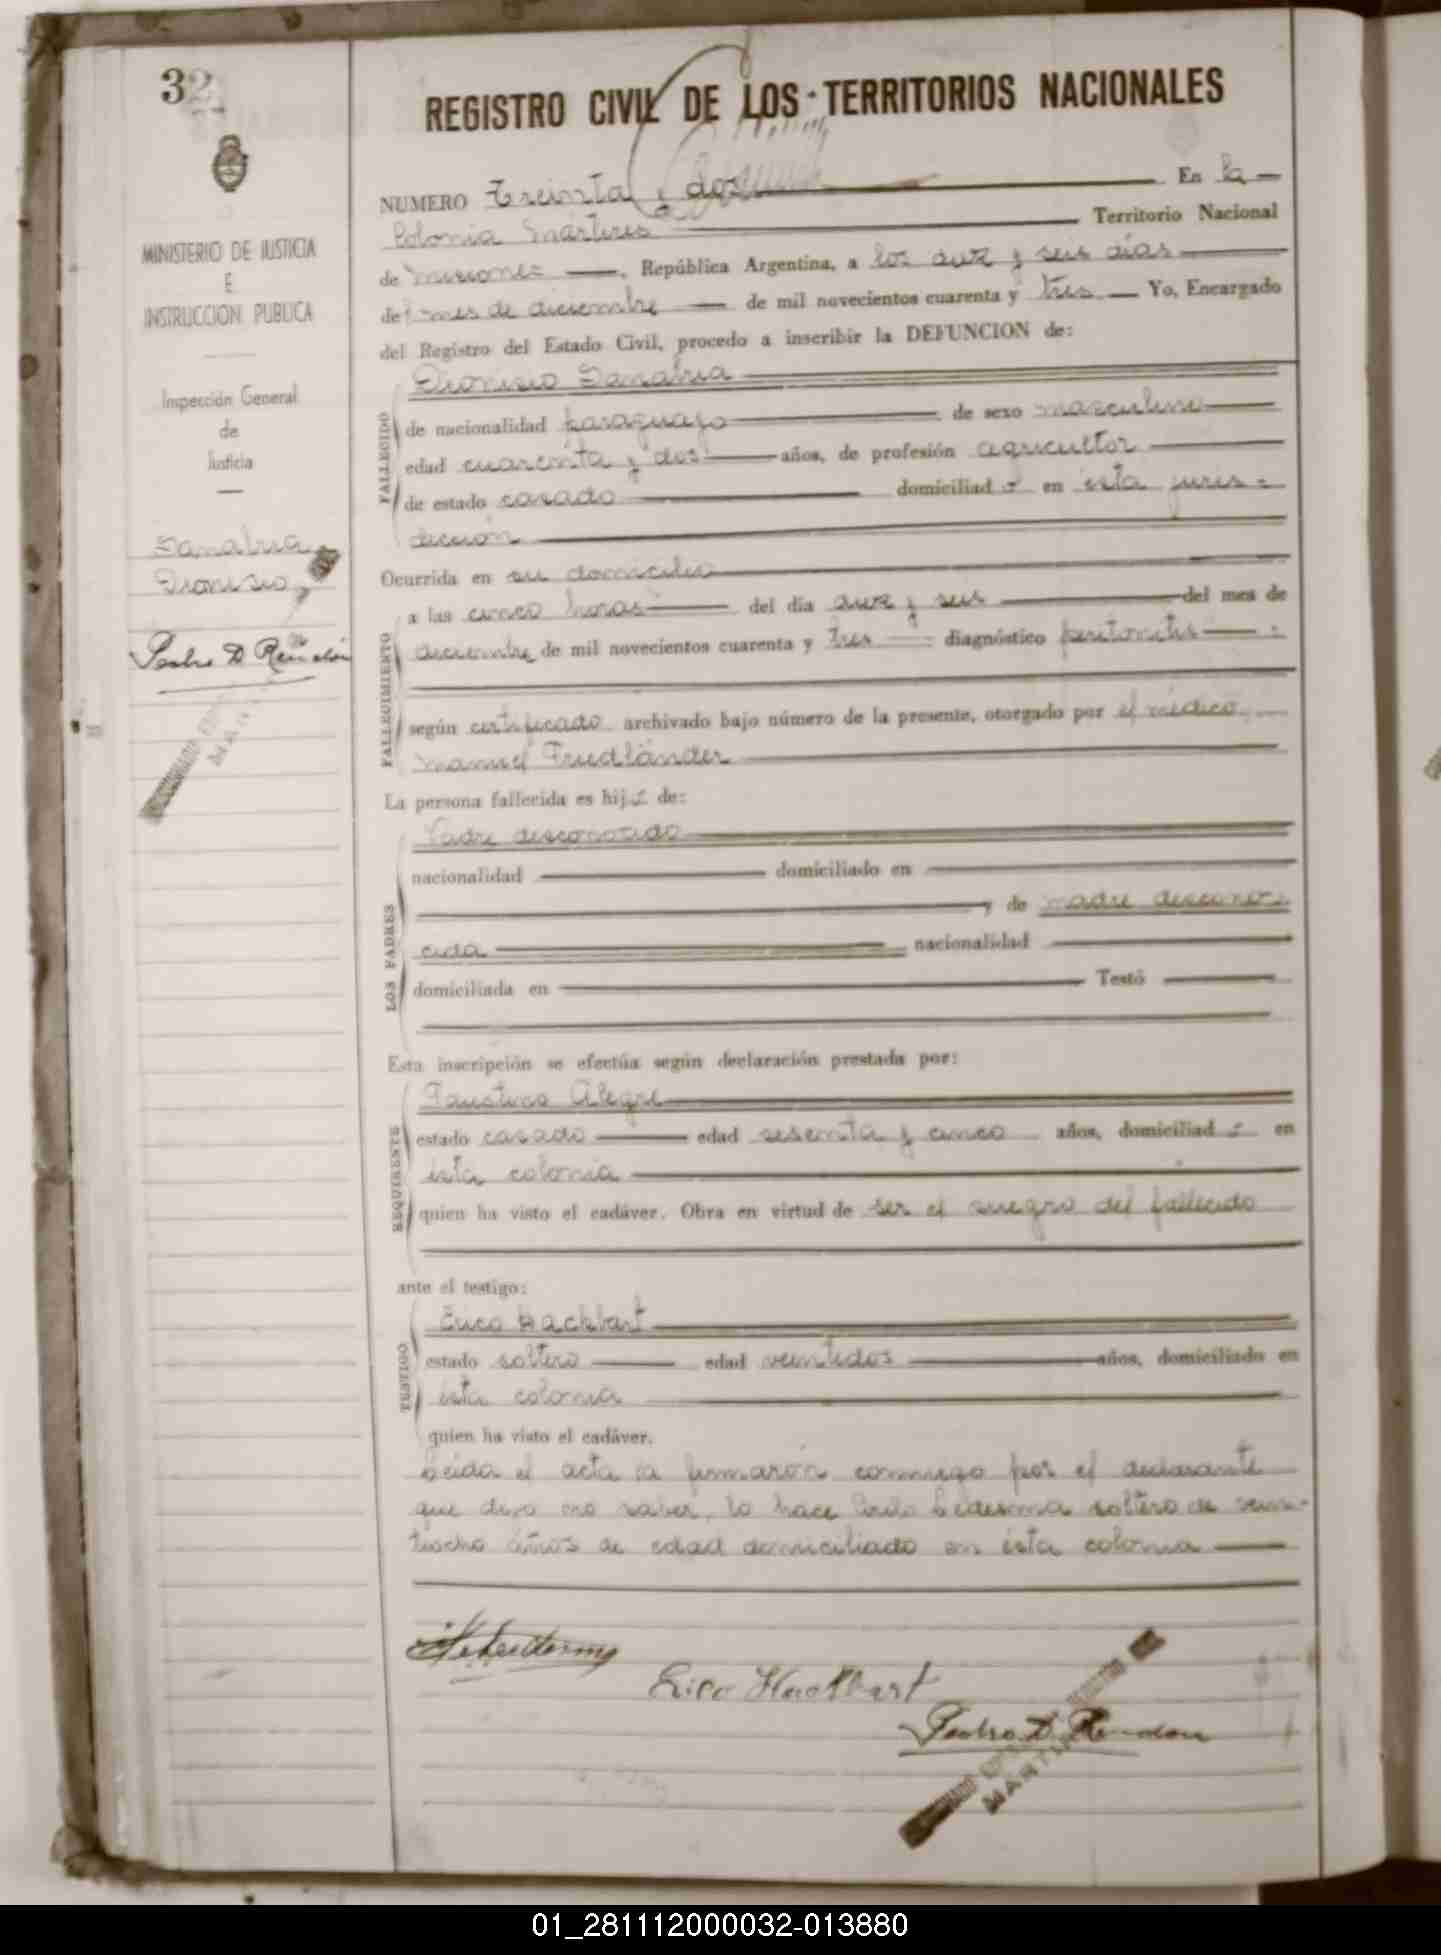 32
REGISTRO CIVIL DE LOS TERRITORIOS NACIONALES
MINISTERIO DE JUSTICIA
E
INSTRUCCION PUBLICA
Inspección General
de
Justicia
Sanabria
Dionisio
Pedro D. Rendón
NUMERO Treinta y dos En la
Colonia Mártires Territorio Nacional
de Misiones, República Argentina, a los diez y seis días
del mes de diciembre de mil novecientos cuarenta y tres Yo, Encargado
del Registro del Estado Civil, procedo a inscribir la DEFUNCION de:
FALLECIDO
Dionisio Sanabria
de nacionalidad paraguayo de sexo masculino
edad cuarenta y dos años, de profesión agricultor
de estado casado domiciliado en ésta juris-
dicción
Ocurrida en su domicilio
FALLECIMIENTO
a las cinco horas del día diez y seis del mes de
diciembre de mil novecientos cuarenta y tres diagnóstico peritonitis
según certificado archivado bajo número de la presente, otorgado por el médico
Manuel Friedländer
La persona fallecida es hijo de:
LOS PADRES
Padre desconocido
nacionalidad domiciliado en
, de madre descono-
cida nacionalidad
domiciliada en Testó
Esta inscripción se efectúa según declaración prestada por:
REQUIRENTE
Faustino Alegre
estado casado edad sesenta y cinco años, domiciliado en
ésta colonia
quien ha visto el cadáver. Obra en virtud de ser el suegro del fallecido
ante el testigo:
TESTIGO
Erico Hackbart
estado soltero edad veintidos años, domiciliado en
ésta colonia
quien ha visto el cadáver.
Leida el acta la firmarón conmigo por el declarante
que dijo no saber, lo hace Ledesma soltero de vein-
tiocho años de edad domiciliado en ésta colonia
Erico Hackbart
Pedro D. Rendón
01_281112000032-013880